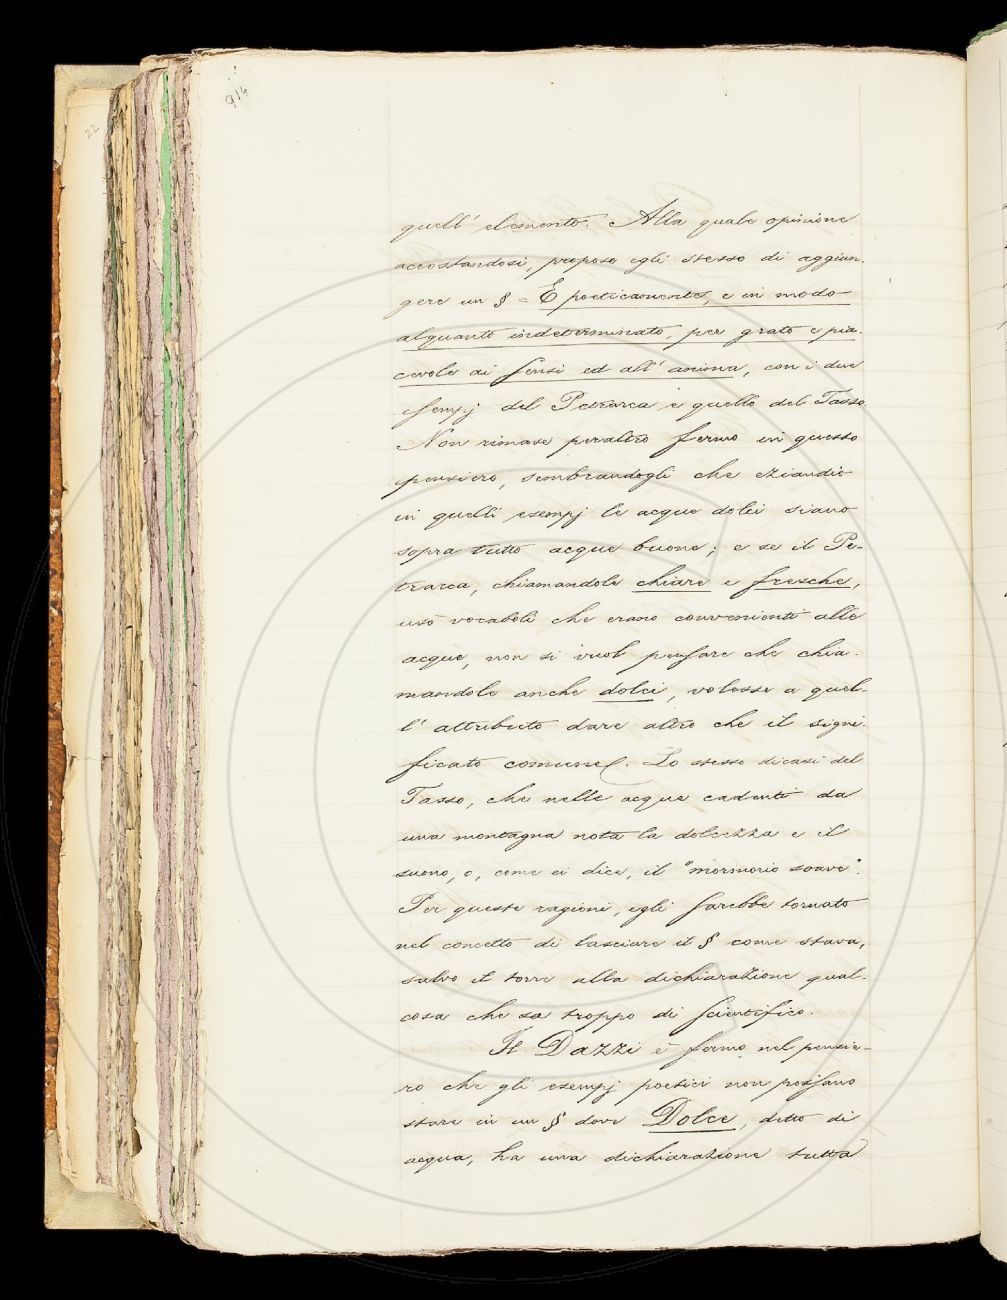 914
22
quell' elemento. Alla quale opinione
accostandosi, propose egli stesso di aggiun-
gere un § = E poeticamente, e in modo
alquanto indeterminato, per grato e pia-
cevole ai sensi ed all' anima, con i due
esempj del Petrarca e quello del Tasso.
Non rimase peraltro fermo in questo
pensiero, sembrandogli che eziandio
in quelli esempj le acque dolci siano
sopra tutto acque buone; e se il Pe-
trarca, chiamandole chiare e fresche,
usò vocaboli che erano convenienti alle
acque, non si vuol pensare che chia-
mandole anche dolci, volesse a quel-
l' attributo dare altro che il signi-
ficato comune. Lo stesso dicasi del
Tasso, che nelle acque cadenti da
una montagna nota la dolcezza e il
suono, o, come ei dice, il "mormorio soave".
Per queste ragioni, egli sarebbe tornato
nel concetto di lasciare il § come stava,
salvo il torre alla dichiarazione qual-
cosa che sa troppo di scientifico.
Il Dazzi è fermo nel pensie-
ro che gli esempj poetici non possano
stare in un § dove Dolce, detto di
acqua, ha una dichiarazione tutta